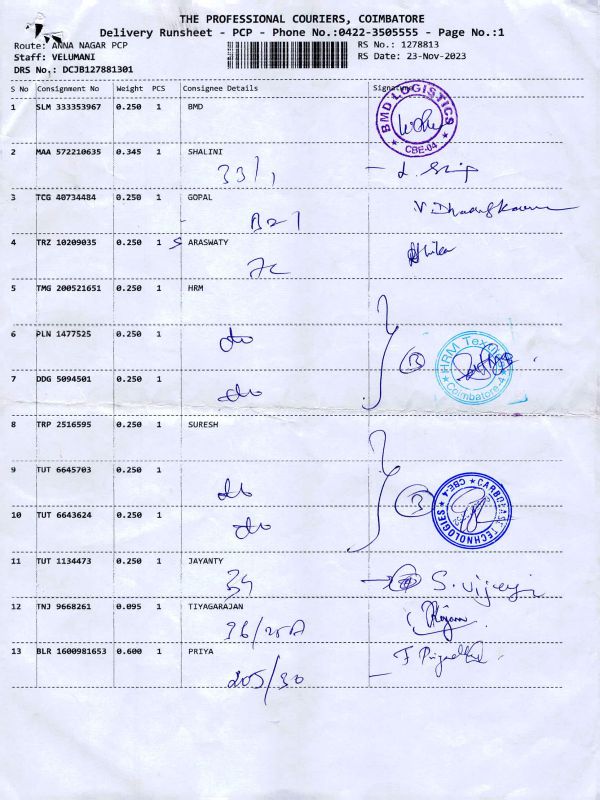 THE PROFESSIONAL COURIERS, COIMBATORE
Delivery Runsheet - PCP - Phone No.:0422-3505555 - Page No.:1
Route: ANNA NAGAR PCP
RS No.: 1278813
Staff: VELUMANI
RS Date: 23-Nov-2023
DRS No.: DCJB127881301
S No Consignment No Weight PCS Consignee Details Signature
1 SLM 333353967 0.250 1 BMD
BMD LOGISTICS
CBE-04
2 MAA 572210635 0.345 1 SHALINI
33/1
3 TCG 40734484 0.250 1 GOPAL
B21
4 TRZ 10209035 0.250 1 S ARASWATY
7C
5 TMG 200521651 0.250 1 HRM
6 PLN 1477525 0.250 1 do
3 HRM Tex
Coimbatore-4
7 DDG 5094501 0.250 1 do
8 TRP 2516595 0.250 1 SURESH
9 TUT 6645703 0.250 1 do
3 TECHNOLOGIES
CBE4
10 TUT 6643624 0.250 1 do
11 TUT 1134473 0.250 1 JAYANTY
34
12 TNJ 9668261 0.095 1 TIYAGARAJAN
36/25A
13 BLR 1600981653 0.600 1 PRIYA
205/30